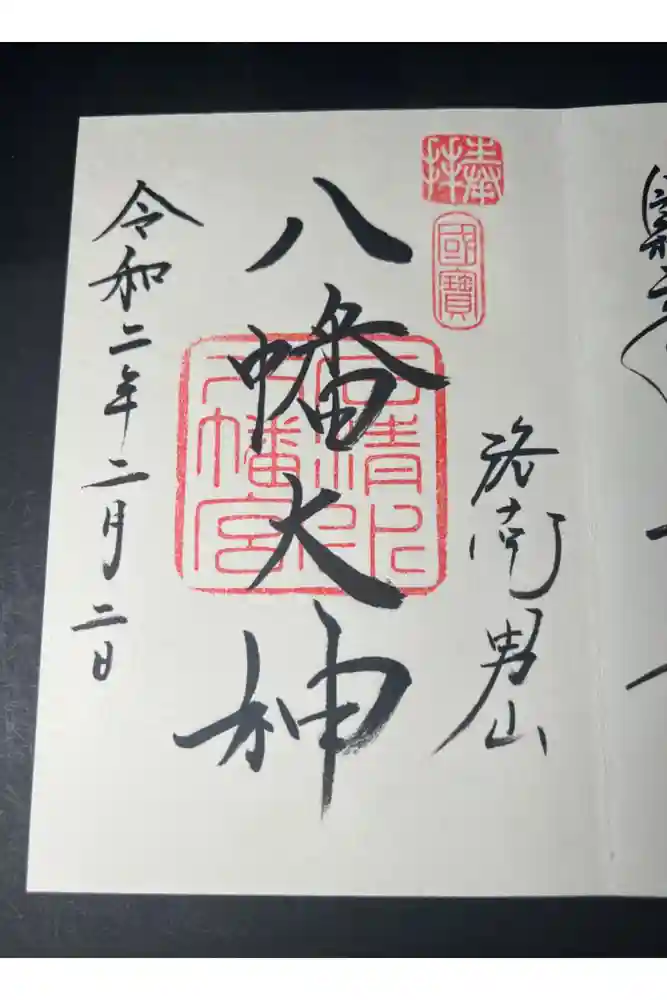 奉拝
國寶
洛南男山
八幡大神
石清水
八幡宮
令和二年二月二日